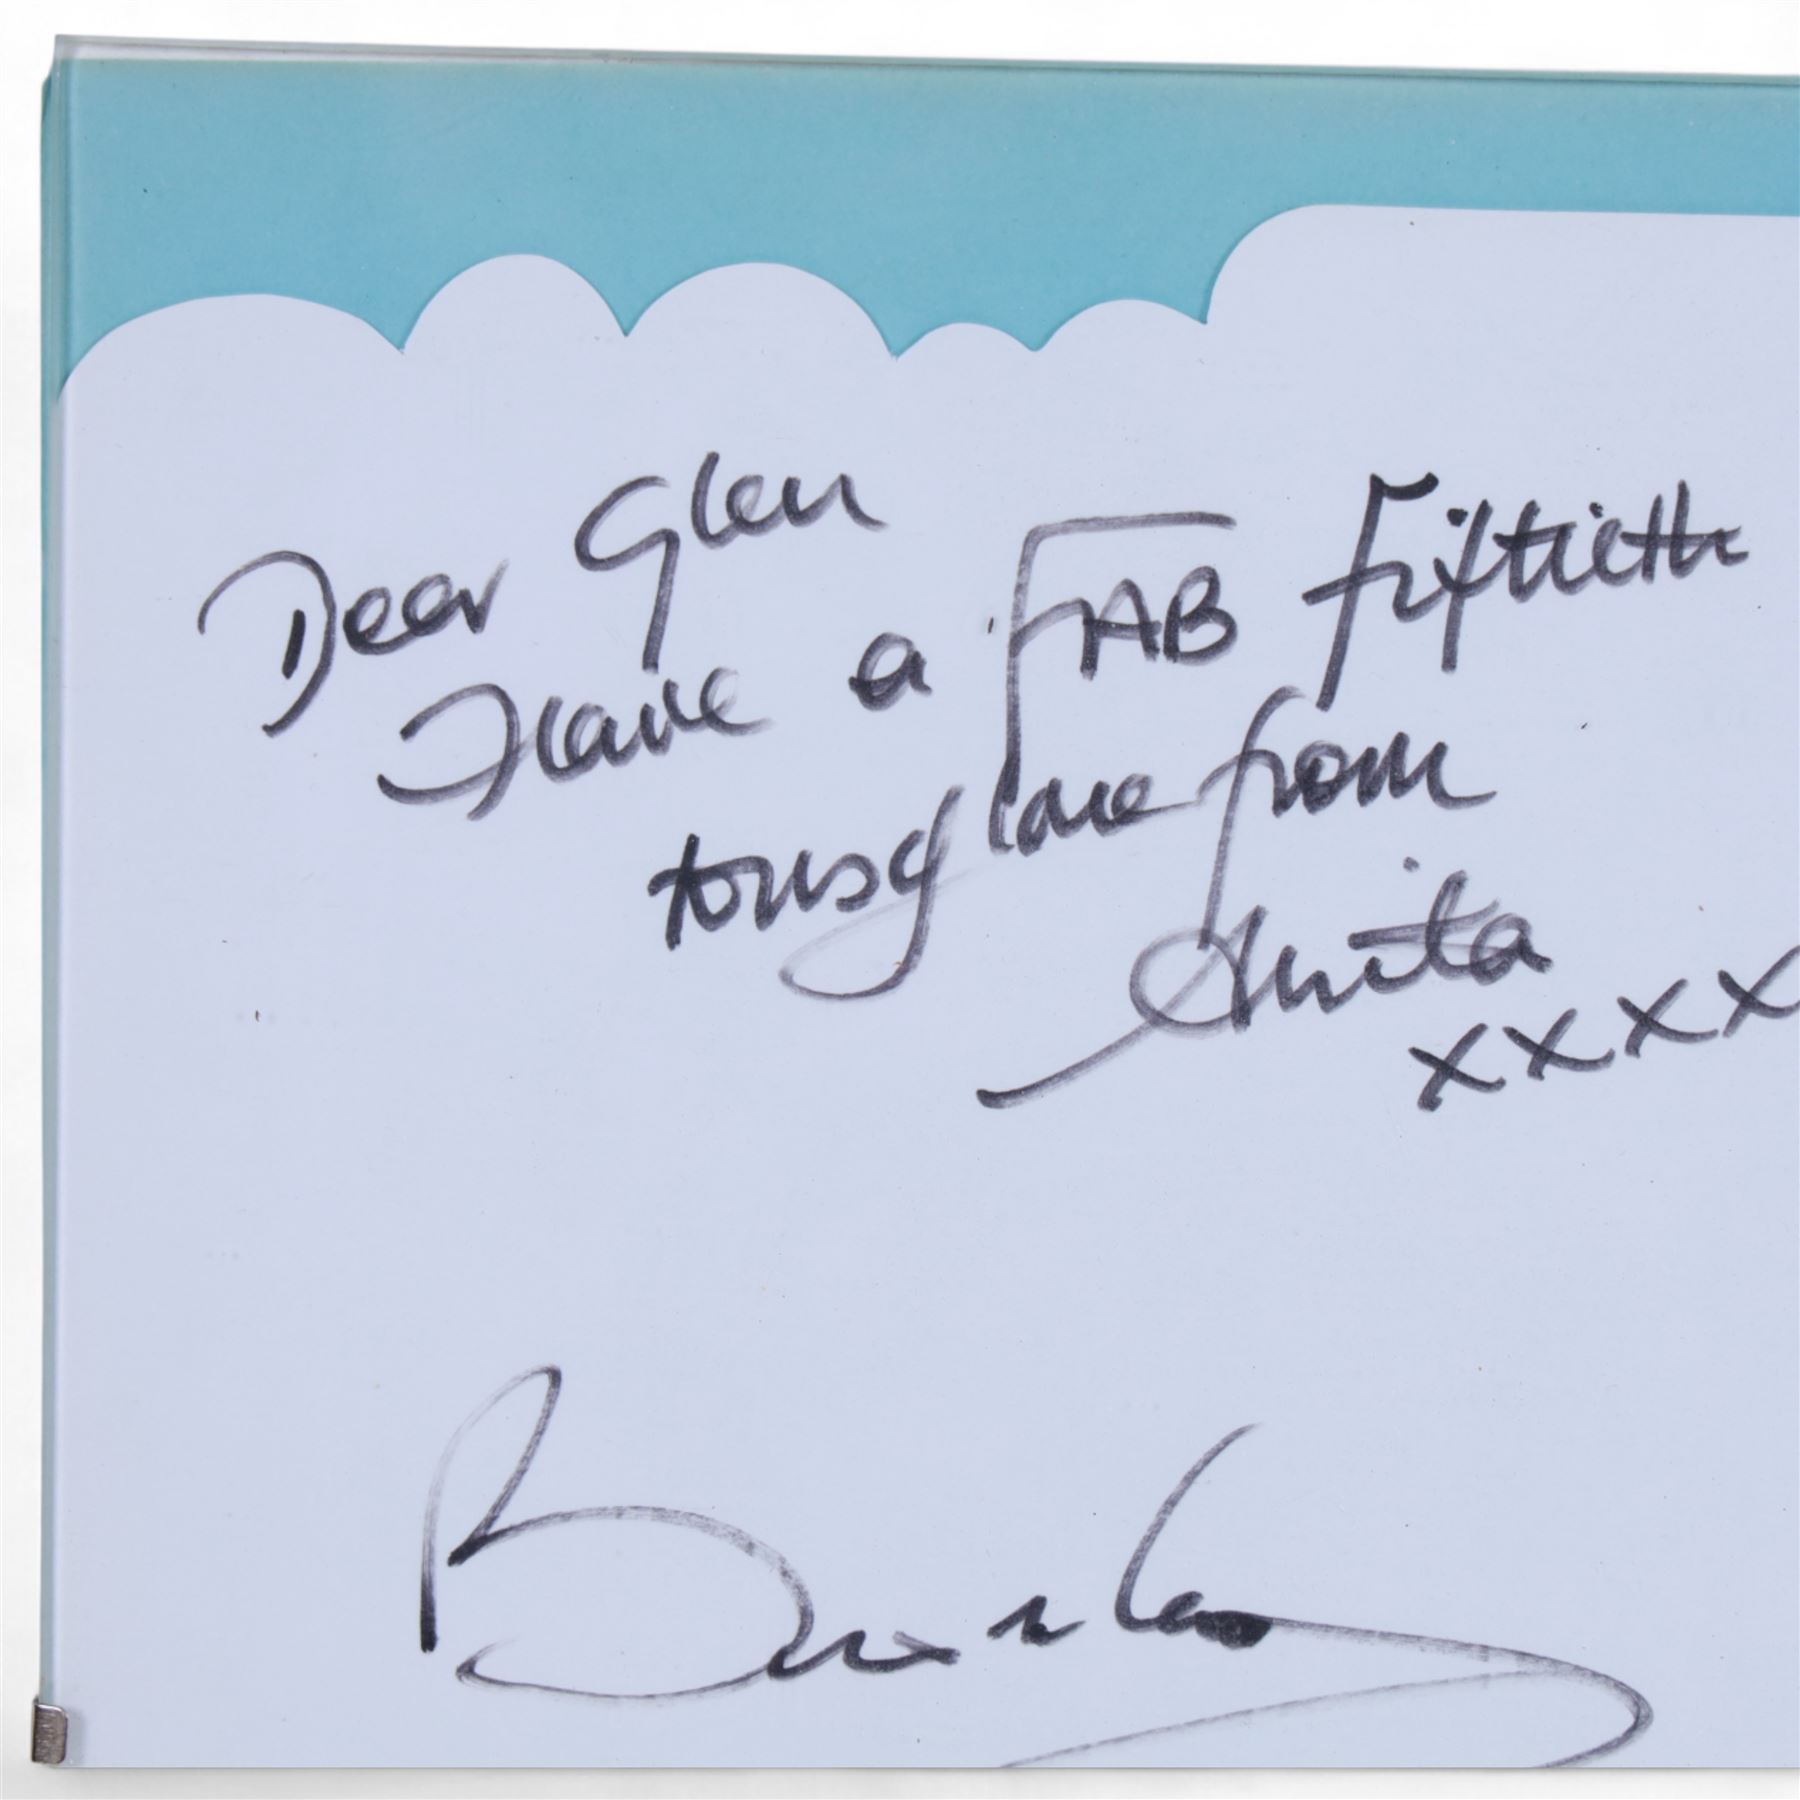 Dear Glen
Have a FAB Fiftieth
love from
Anita
xxxx